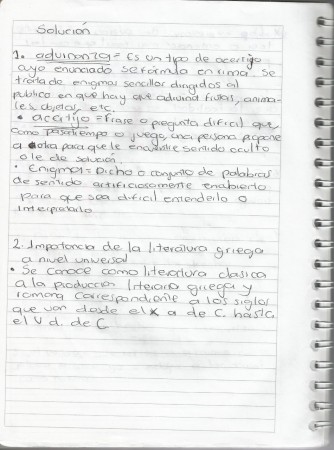 Solución
1. adivinanza = Es un tipo de acertijo
cuyo enunciado se formula en rima. Se
trata de enigmas sencillos dirigidos al
publico en que hay que adivinar frutas, anima-
les, objetos, etc.
• acertijo = Frase o pregunta dificil que
como pasatiempo o juego, una persona propone
a otra para que le encuentre sentido oculto
o le de solución.
• Enigmas = Dicho o conjunto de palabras
de sentido artificiosamente enabierto
para que sea dificil entenderlo o
interpretarlo
2. Impotancia de la literatura griega
a nivel universal
• Se conoce como literartura clasica
a la produccion literaria griega y
romana correspondiente a los siglos
que van desde el X a de C. hasta
el V d. de C